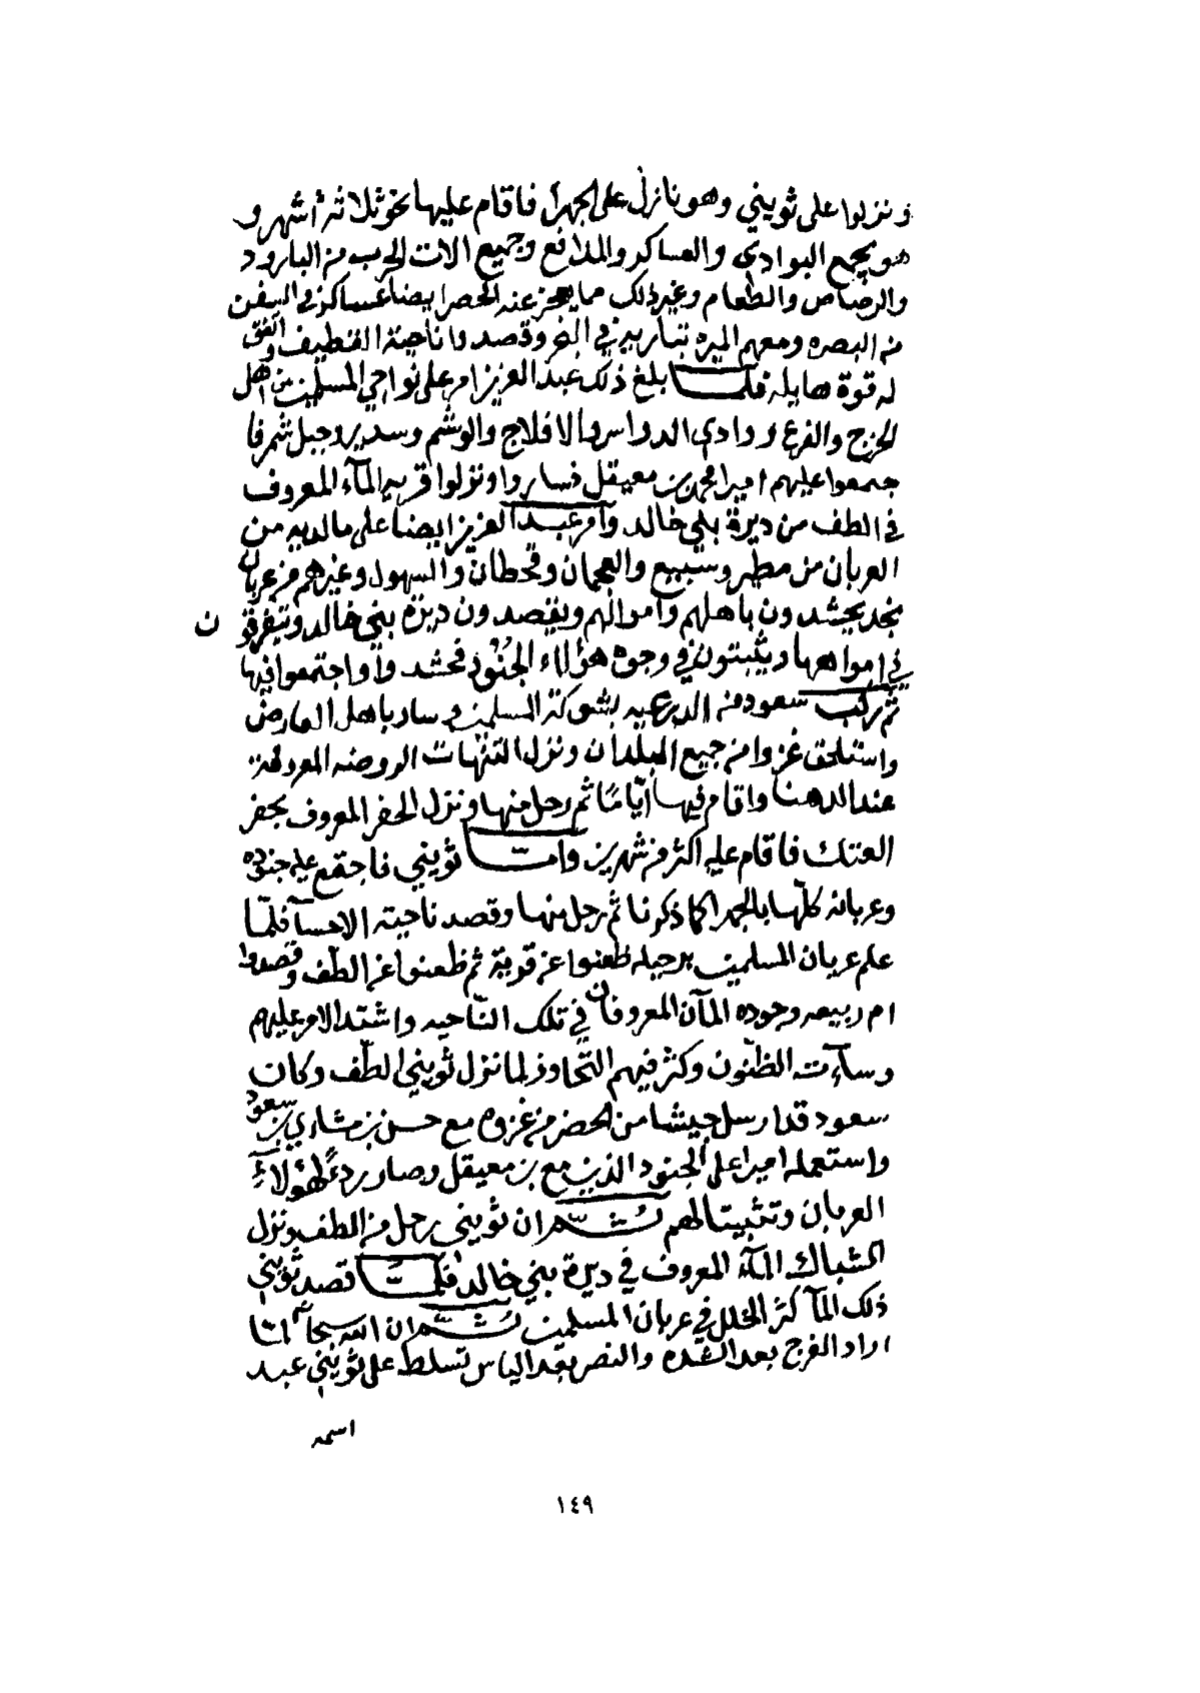 ونزلوا على ثويني وهو نازل على الجهرا فاقام عليها نحو ثلاثة أشهر و
هو يجمع البوادي والعساكر والمدافع وجميع الات الحرب من البارود
والرصاص والطعام وغير ذلك مما يعجز عنه الحصر ايضا عساكر في السفن
من البصره ومعهم الميره تباريه في البحر وقصدوا ناحية القطيف واتفق
له قوة هايله فلما بلغ ذلك عبد العزيز امر على نواحي المسلمين من اهل
الخرج والفرع ووادي الدواسر والافلاج والوشم وسدير وجبل شمر فا
جتمعوا عليهم اميرا محمد بن معيقل فساروا ونزلوا قريه الماء المعروف
في الطف من ديرة بني خالد وامر عبد العزيز ايضا على مالديه من
العربان من مطير وسبيع والعجمان وقحطان والسهول وغيرهم من عربان
نجد يحشدون باهلهم واموالهم ويقصدون ديرة بني خالد ويتفرقون
في امواهها ويثبتون في وجوه هؤلاء الجنود فحشدوا واجتمعوا فيها
ثم ركب سعود من الدرعيه بشوكة المسلمين وسار باهل العارض
واستلحق غزوا من جميع البلدان ونزل التنهات الروضه المعروفة
عند الدهنا واقام فيها ايّامًا ثم رحل منها ونزل الحفر المعروف بحفر
العتك فاقام عليه اكثر من شهرين وامّا ثويني فاجتمع عليه جنوده
وعربانه كلّها بالجهرا كما ذكرنا ثم رحل منها وقصد ناحية الاحسآ فلمّا
علم عربان المسلمين برحيله ظعنوا عن قرية ثم ظعنوا عن الطّف وقصدوا
ام ربيعه وجوده المآن المعروفان في تلك النّاحيه واشتد الامر عليهم
وسآءت الظنون وكثر فيهم التخاوذ لما نزل ثويني الطّف وكان
سعود قد ارسل جيشا من الحضر من غزوه مع حسن بن مشاري بن سعود
واستعمله اميرا على الجنود الذين مع بن معيقل وصار ردءً لهؤلآء
العربان وتثبيتا لهم ثُمَّ ان ثويني رحل من الطف ونزل
الشباك المآء المعروف في ديرة بني خالد فلمّا قصد ثويني
ذلك المآ كثر الخلل في عربان المسلمين ثُمَّ ان الله سبحانه لمّا
اراد الفرج بعد الشده والنصر بعد الياس تسلط على ثويني عبد
اسمه
١٤٩